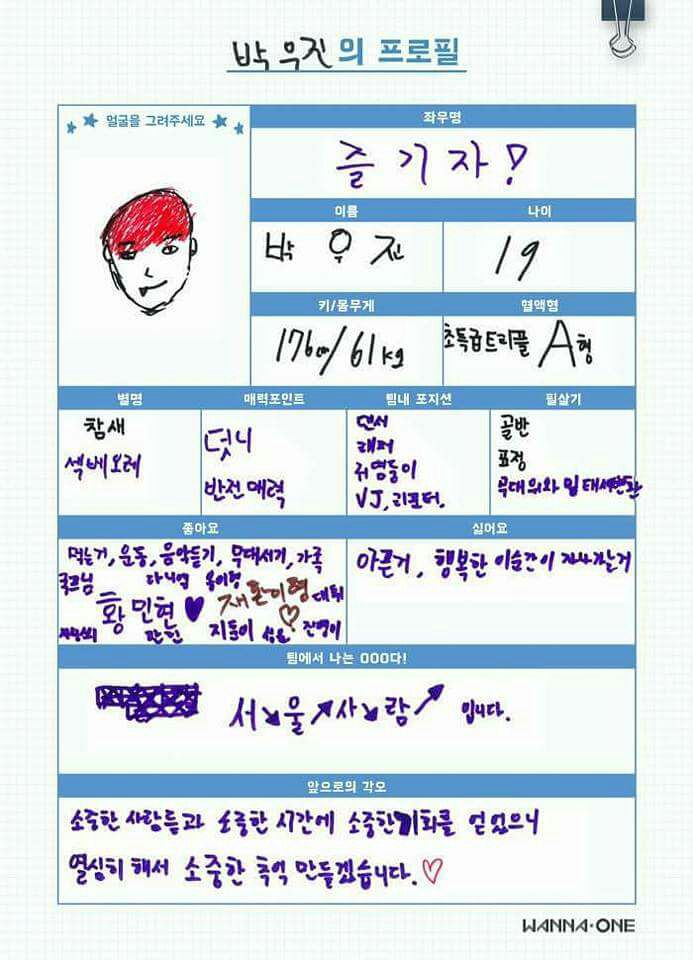 박우진의 프로필
얼굴을 그려주세요
좌우명
즐기자!
이름
나이
박우진
19
키/몸무게
혈액형
176cm/61kg
초특급트리플 A형
별명
매력포인트
팀내 포지션
필살기
참새
섹베오레
덧니
반전매력
댄서
래퍼
귀염둥이
VJ, 리포터.
골반
표정
무대위와 밑
좋아요
싫어요
먹는거, 운동, 음악듣기, 무대서기, 가족
황민현 ♥ 재환이형 ♡ 대휘
관린 지훈이 성운
아픈거, 행복한 이순간이 지나가는거
팀에서 나는 OOO다!
서↘울↗사↘람↗ 입니다.
앞으로의 각오
소중한 사람들과 소중한 시간에 소중한 기회를 얻었으니
열심히 해서 소중한 추억 만들겠습니다.♡
WANNA·ONE